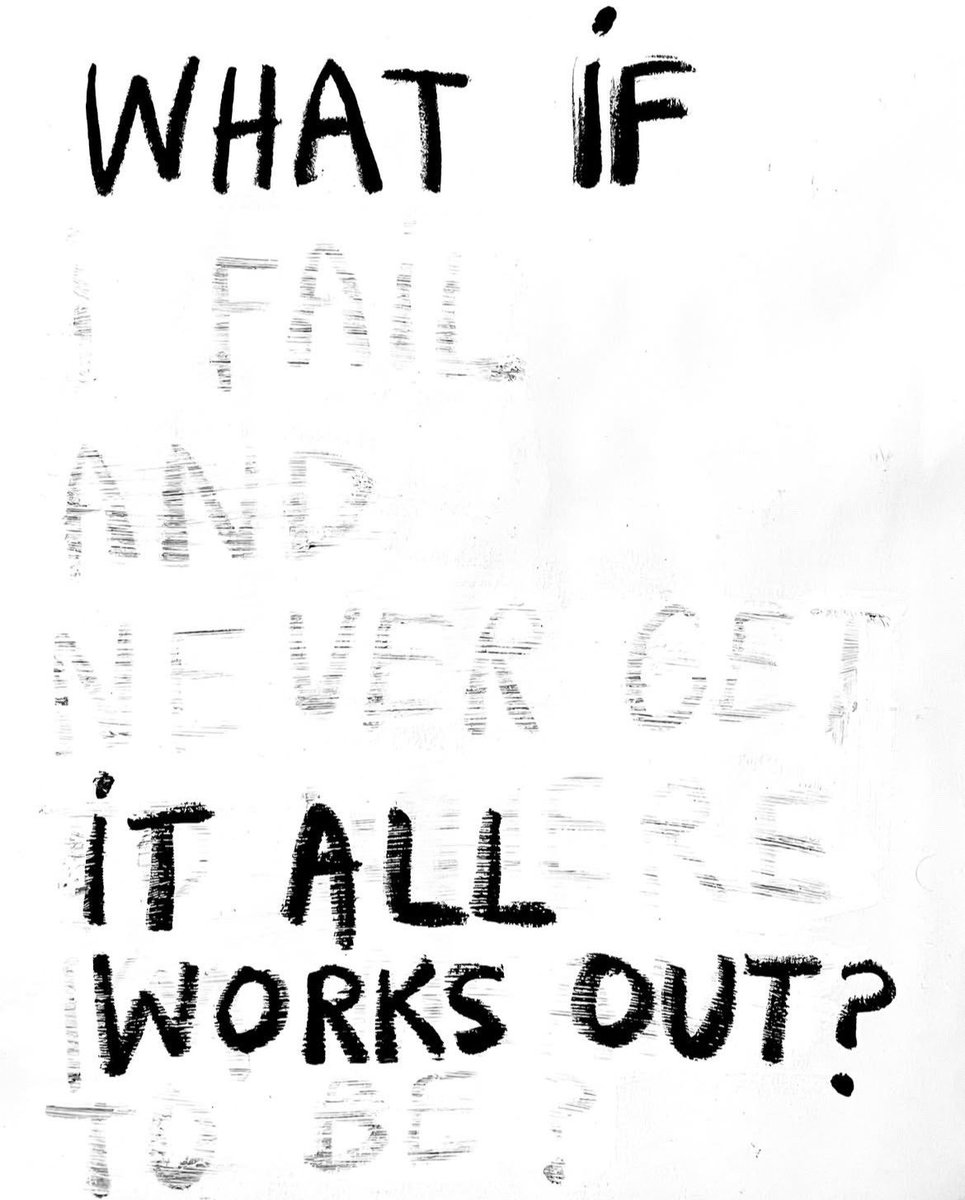 WHAT IF
I FAIL
AND
NEVER GET
TO WHERE
IT ALL
WORKS OUT?
TO BE?